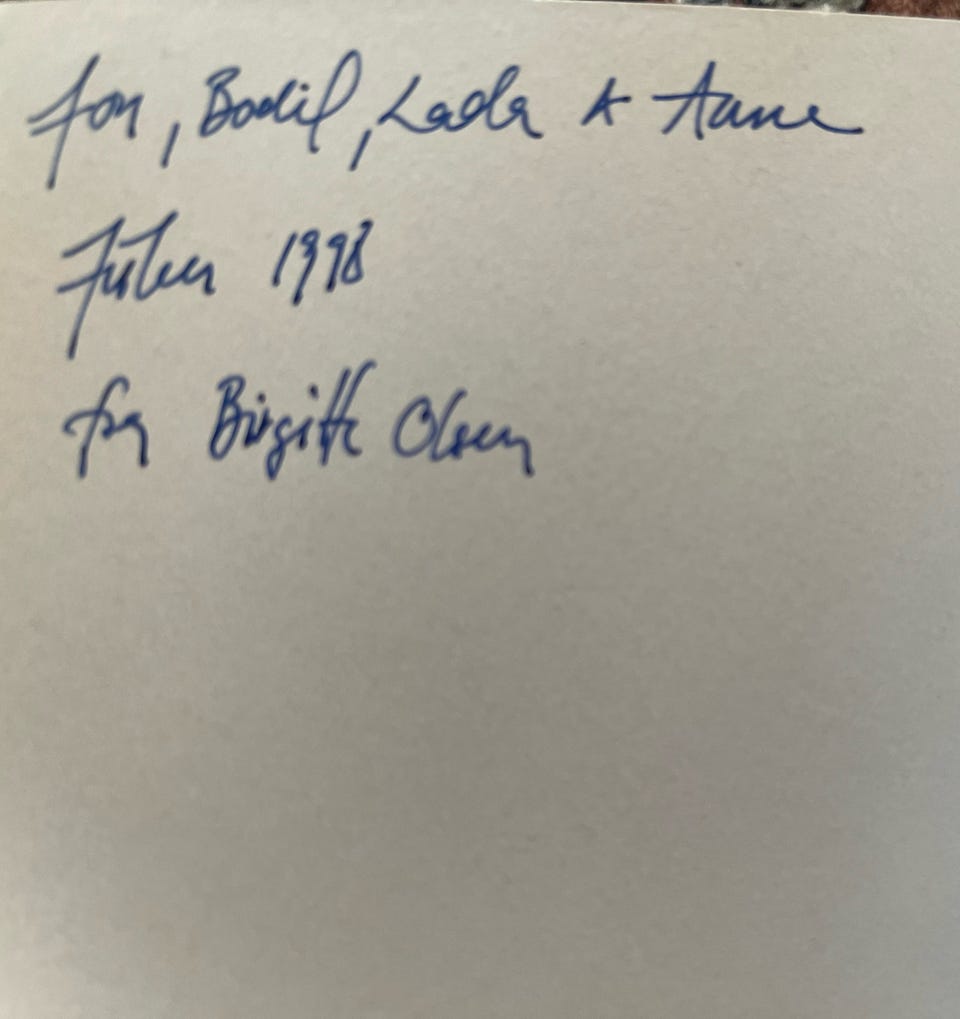 Jon, Bodil, Lada & Anne
Julen 1998
fra Birgitte Olsen